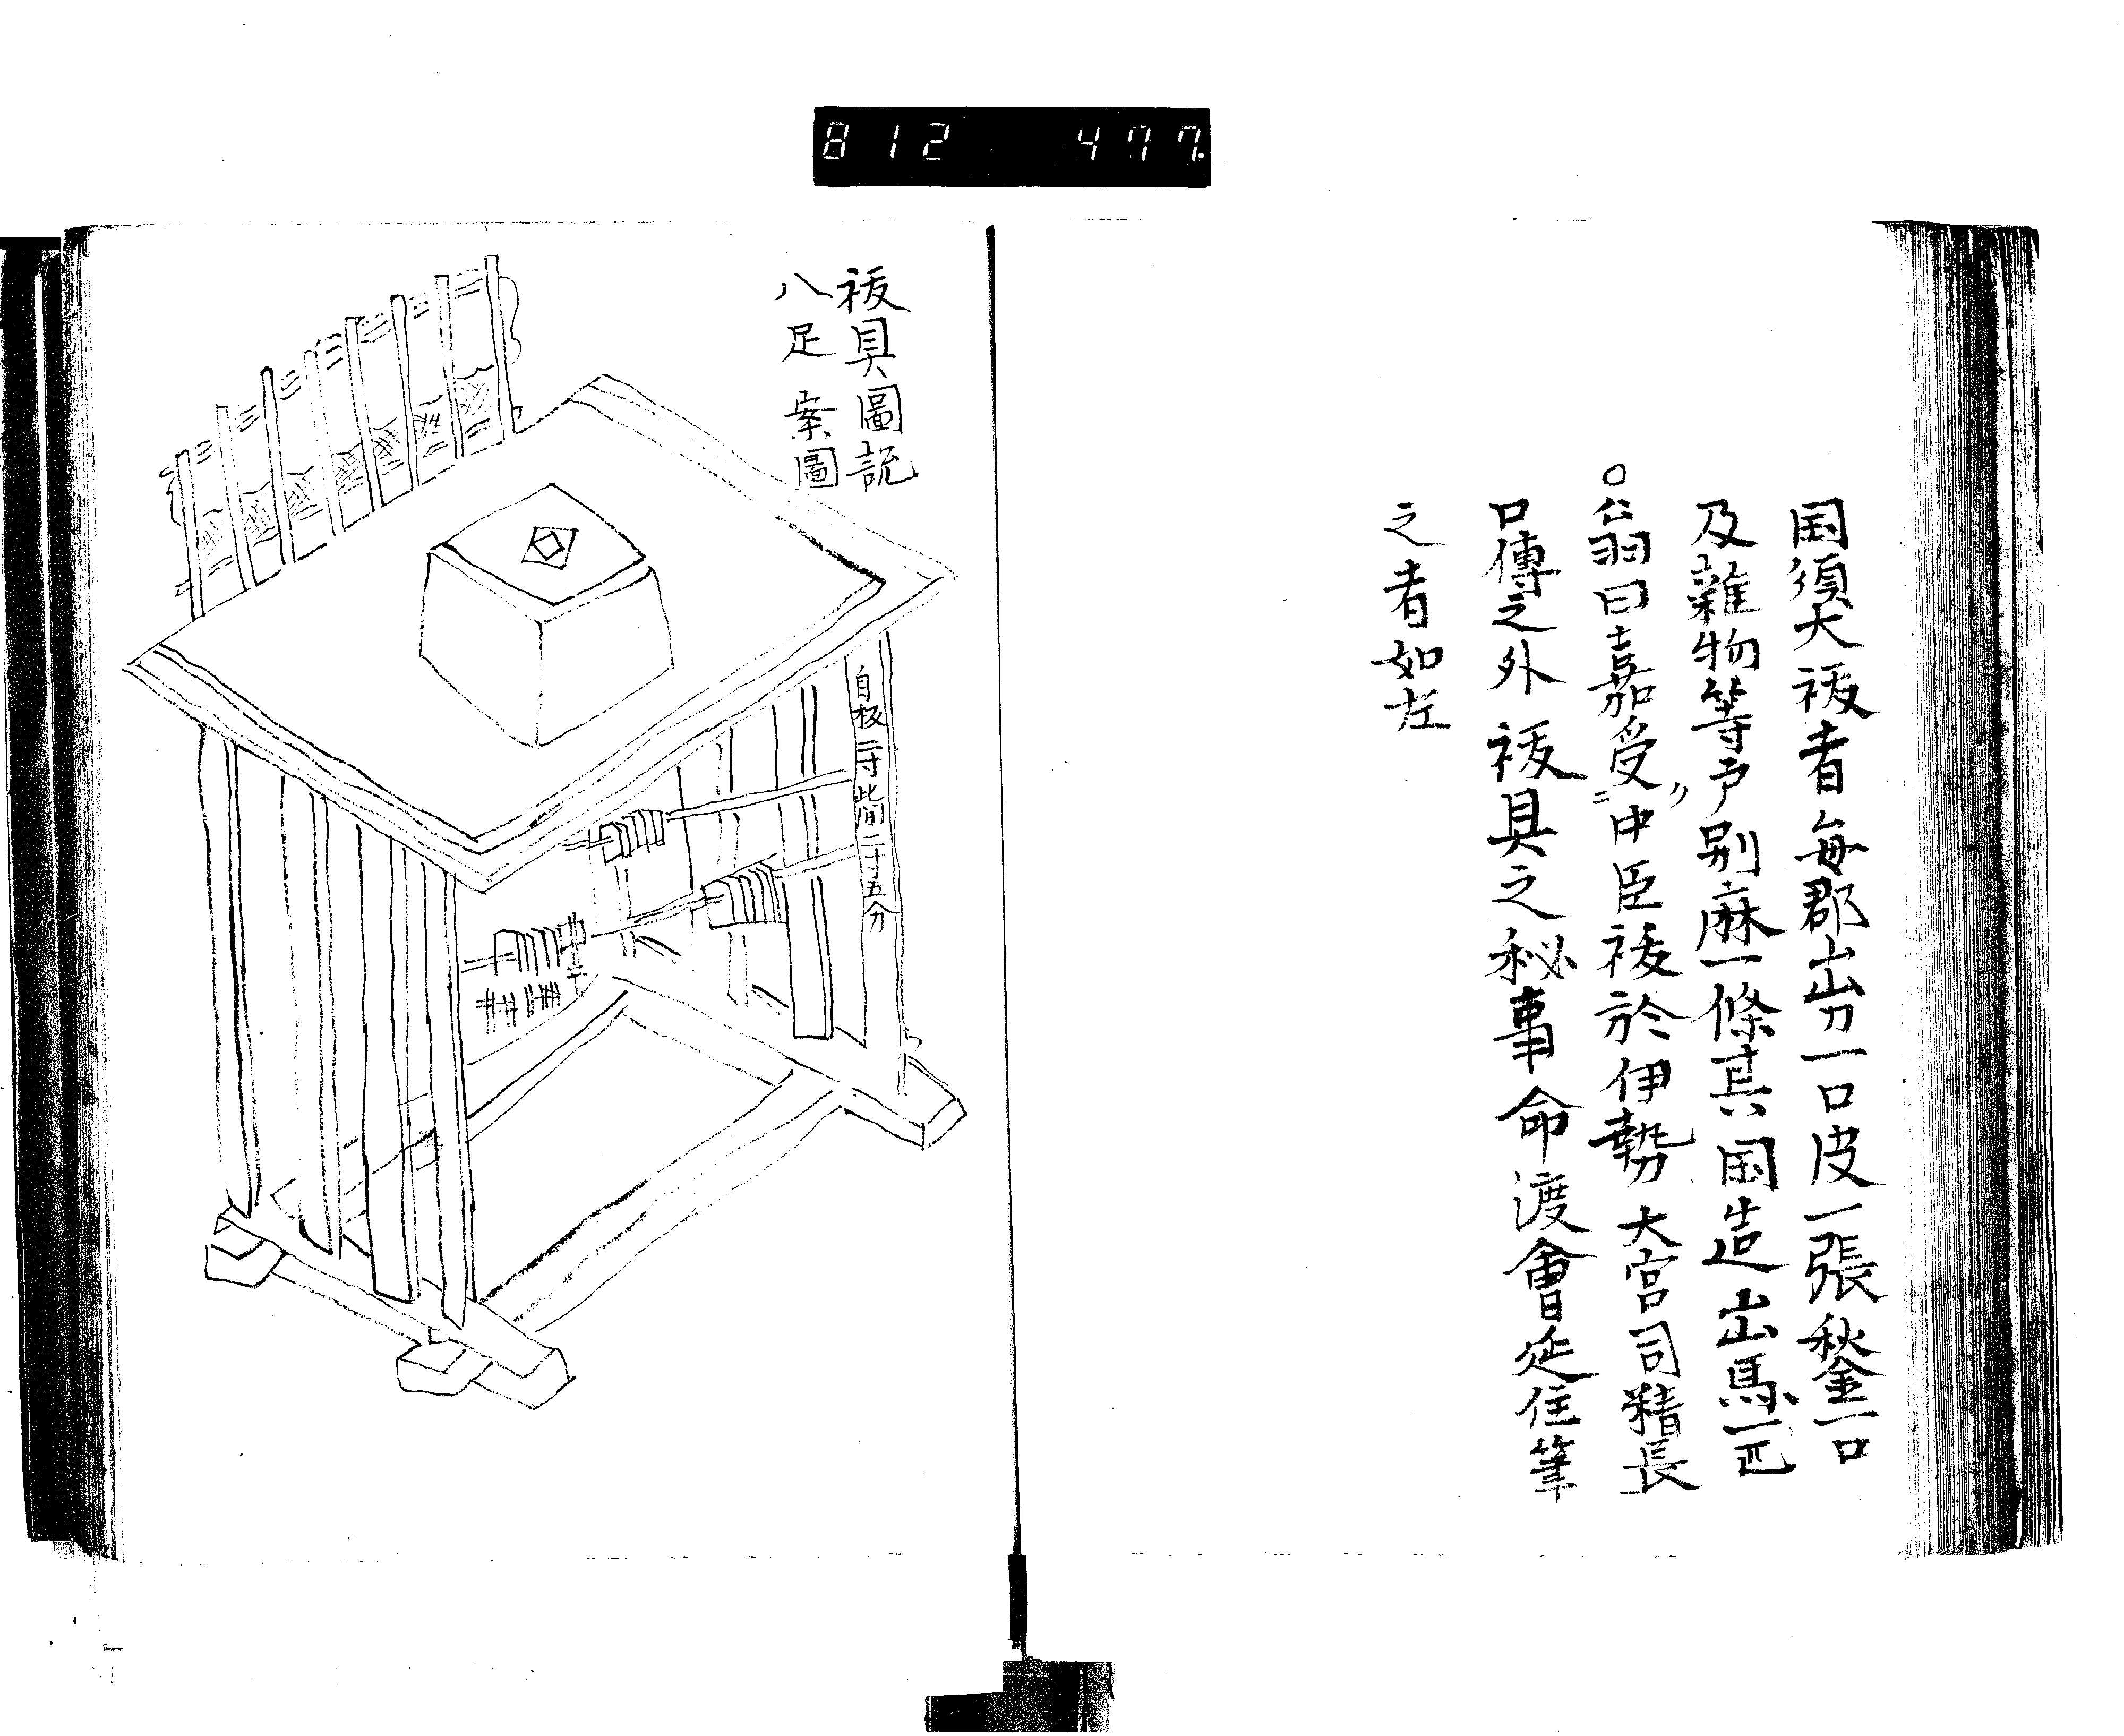 812 477
国須大祓者毎郡出刀一口皮一張鍫一口
及雜物等戸別麻一條其国造出馬一匹
○翁曰嘉受中臣祓於伊勢大宮司精長
口傳之外祓具之秘事命渡會延住筆
之者如左
祓具圖説
八足案圖
自板二寸此間二寸五分